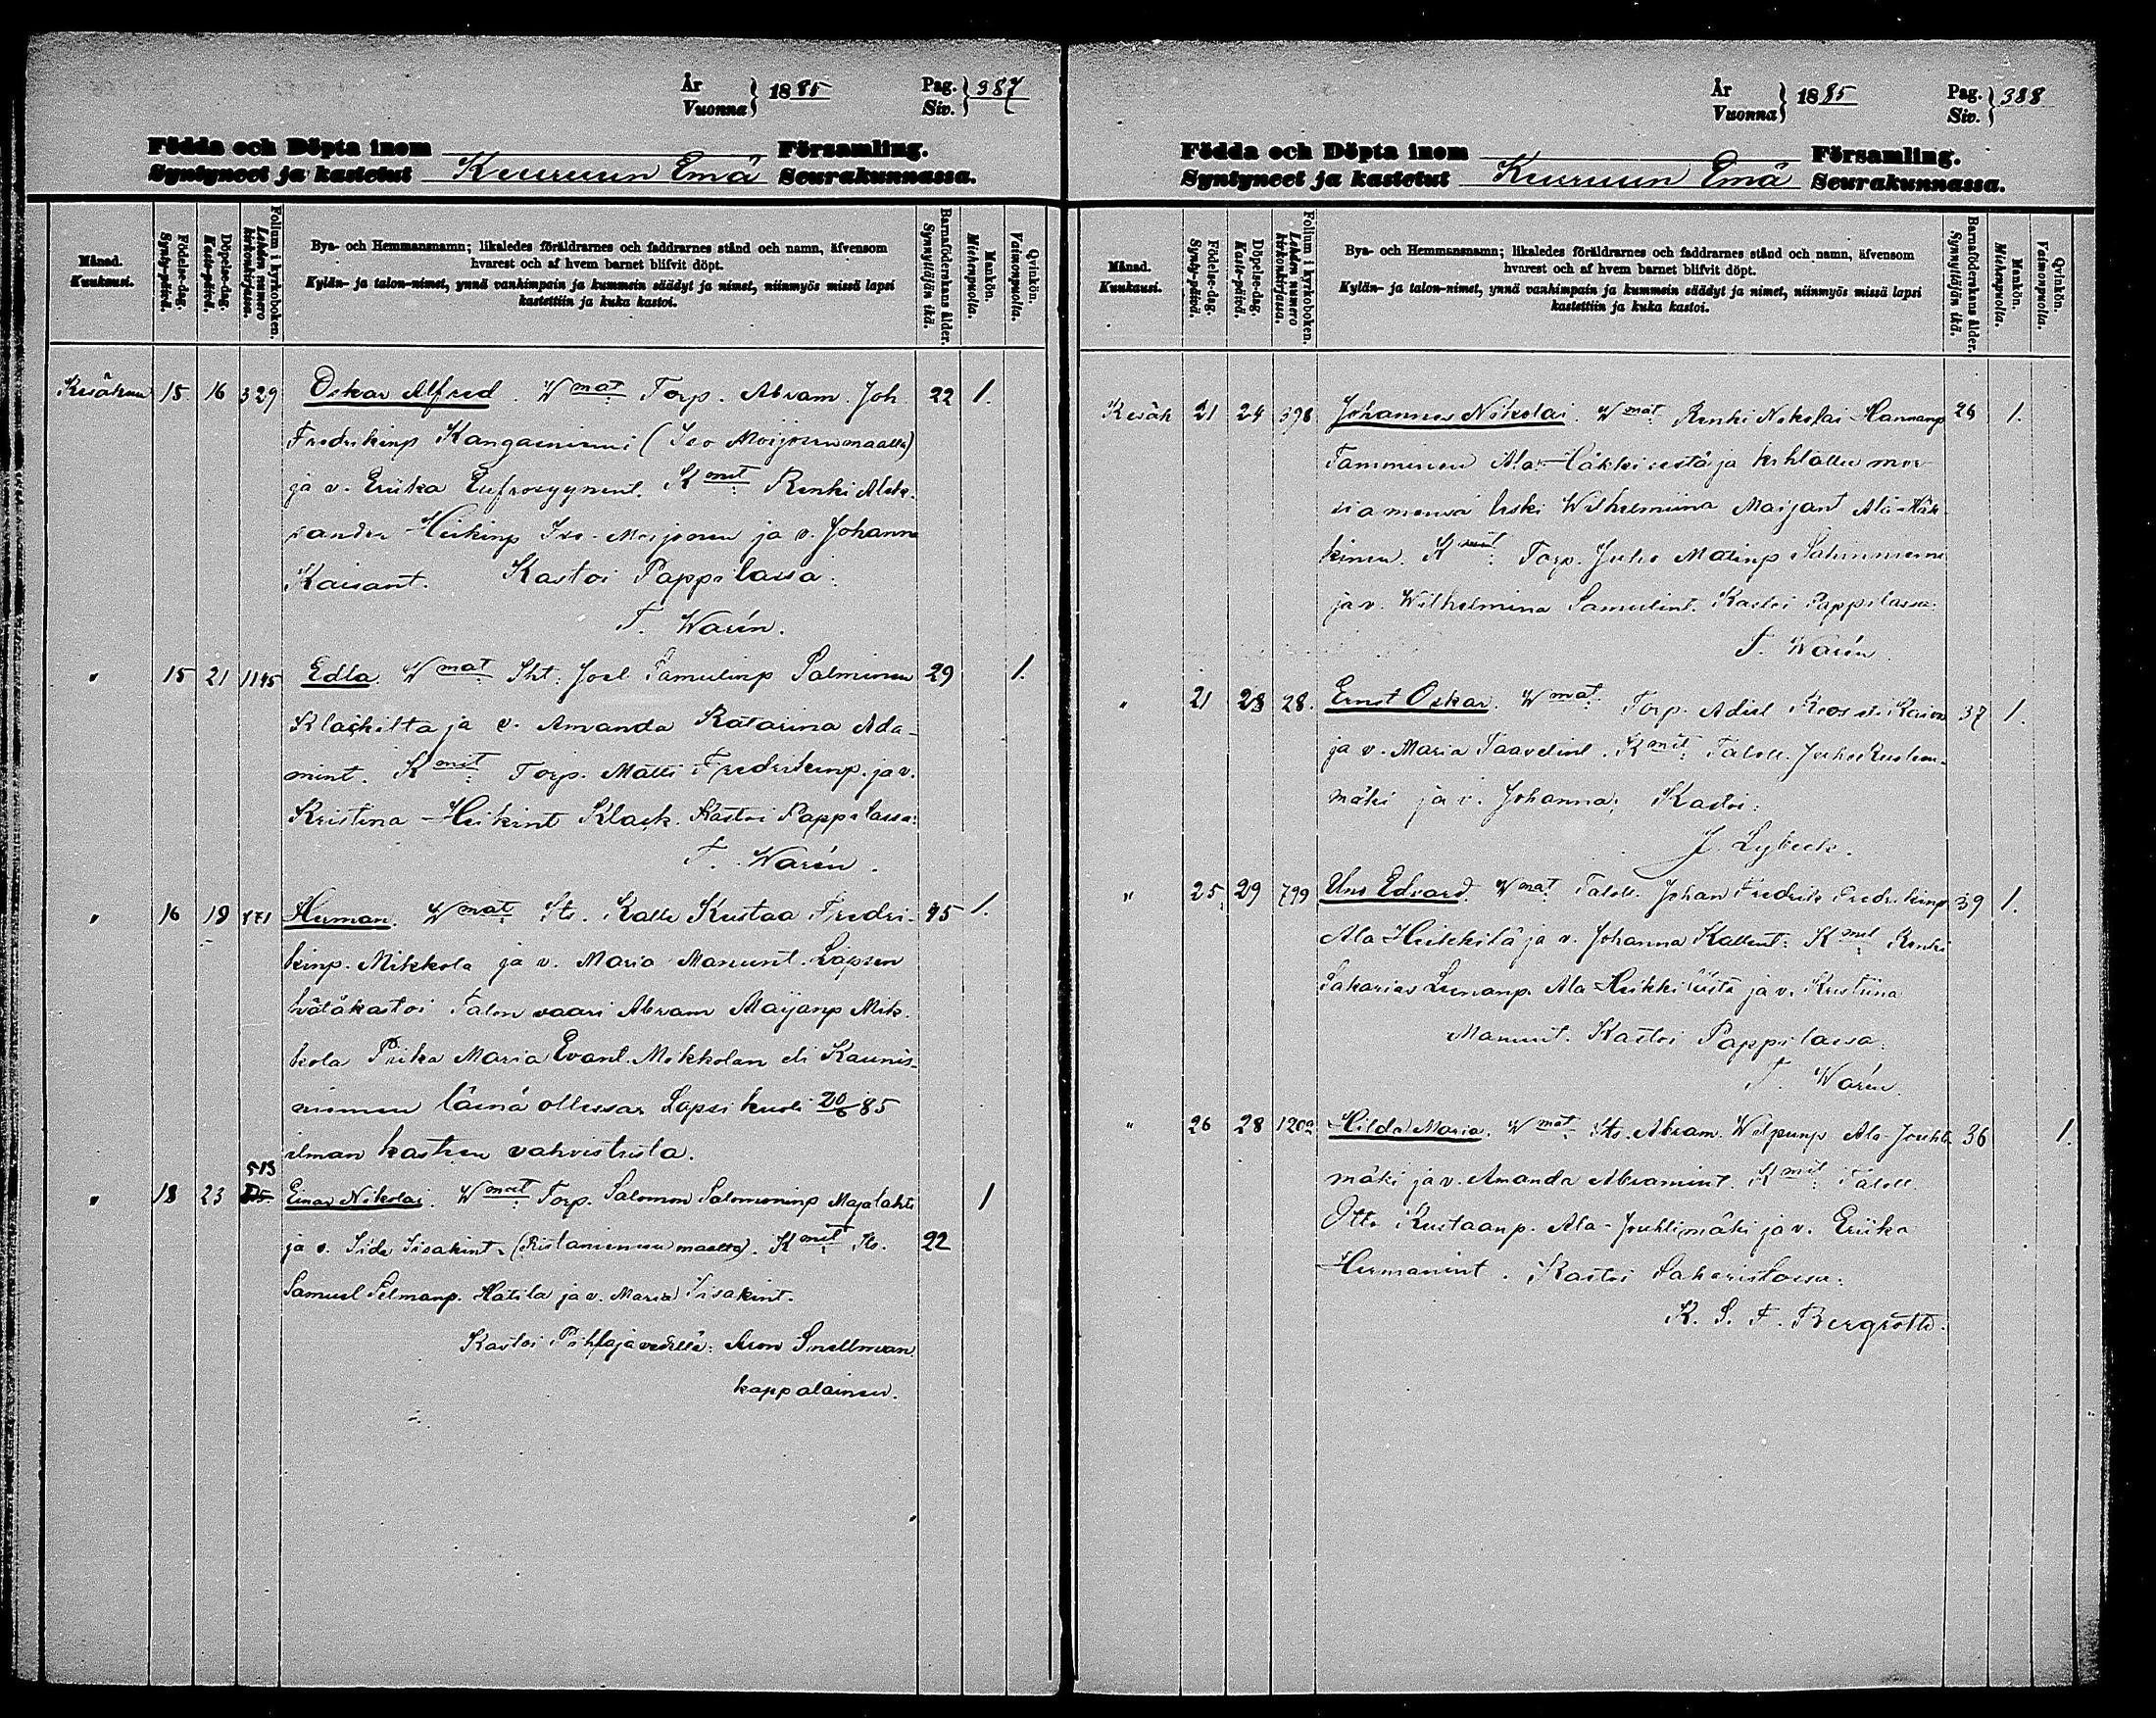 År
Vuonna } 1885
Pag.
Siv. } 387
Födda och Döpta inom Församling.
Syntyneet ja kastetut Keuruun Emä Seurakunnassa.
Månad.
Kuukausi.
Födelse-dag.
Synty-päivä.
Döpelse-dag.
Kaste-päivä.
Folium i kyrkoboken.
Lehden numero kirkonkirjassa.
Bya- och Hemmansnamn; likaledes föräldrarnes och faddrarnes stånd och namn, äfvensom
hvarest och af hvem barnet blifvit döpt.
Kylän- ja talon-nimet, ynnä vanhimpain ja kummein säädyt ja nimet, niinmyös missä lapsi
kastettiin ja kuka kastoi.
Barnaföderskans ålder.
Synnyttäjän ikä.
Mankön.
Miehenpuolia.
Qvinkön.
Vaimonpuolia.
Kesäkuu 15 16 329 Oskar Alfred. Wmat: Torp. Abram Joh. 22 1.
Fredrikinp Kangasniemi (Iso Moijosen maalla)
ja v. Eriika Eufrosyynint. Kmit: Renki Alek-
sander Heikinp Iso-Moijonen ja v. Johanna
Kaisant. Kastoi Pappilassa:
T. Warén.
" 15 21 1145 Edla. Wmat: Iht. Joel Samulinp Salminen 29 1.
Klackilta ja v. Amanda Katarina Ada-
mint. Kmit: Torp. Matti Fredrikinp. ja v.
Kristina Heikint Klack. Kastoi Pappilassa:
T. Warén.
" 16 19 871 Herman. Wmat: Its. Kalle Kustaa Fredri- 45 1.
kinp. Mikkola ja v. Maria Manunt. Lapsen
hätäkastoi Talon vaari Abram Maijanp Mik-
kola Piika Maria Evant. Mikkolan eli Kaunis-
niemen läsnä ollessa. Lapsi kuoli 20/6 85
ilman kasteen vahvistusta.
" 18 23 513 Einar Nikolai. Wmat: Torp. Salomon Salomoninp Majalahti 1
ja v. Iida Iisakint. (Ristaniemen maalta). Kmit: Its. 22
Samuel Selmanp. Hatila ja v. Maria Iisakint.
Kastoi Pihlajavedellä: Aron Snellman.
kappalainen.
År
Vuonna } 1885
Pag.
Siv. } 388
Födda och Döpta inom Församling.
Syntyneet ja kastetut Keuruun Emä Seurakunnassa.
Månad.
Kuukausi.
Födelse-dag.
Synty-päivä.
Döpelse-dag.
Kaste-päivä.
Folium i kyrkoboken.
Lehden numero kirkonkirjassa.
Bya- och Hemmansnamn; likaledes föräldrarnes och faddrarnes stånd och namn, äfvensom
hvarest och af hvem barnet blifvit döpt.
Kylän- ja talon-nimet, ynnä vanhimpain ja kummein säädyt ja nimet, niinmyös missä lapsi
kastettiin ja kuka kastoi.
Barnaföderskans ålder.
Synnyttäjän ikä.
Mankön.
Miehenpuolia.
Qvinkön.
Vaimonpuolia.
Kesäk 21 24 398 Johannes Nikolai. Wmat: Renki Nikolai Hannanp 26 1.
Tamminen Ala-Häkkisestä ja kihlattu mor-
siamensa leski Wilhelmiina Maijant Ala-Häk-
kinen. Kmit: Torp. Juho Matinp Salminiemi
ja v. Wilhelmina Samulint. Kastoi Pappilassa:
T. Warén.
" 21 28 28. Ernst Oskar. Wmat: Torp. Adiel Kaivos 37 1.
ja v. Maria Taavetint. Kmit: Taloll. Juho
mäki ja v. Johanna; Kastoi:
J. Lybeck.
" 25 29 799 Uno Edvard. Wmat: Taloll. Johan Fredrik Fredrikinp 39 1.
Ala Heikkilä ja v. Johanna Kallent: Kmit Renki
Sakarias Leenanp. Ala Heikkilästä ja v. Kristiina
Manunt. Kastoi Pappilassa:
T. Warén.
" 26 28 1202 Hilda Maria. Wmat: Its. Abram. Wilpunp Ala Jouhti- 36 1.
mäki ja v. Amanda Abramint. Kmit: Taloll.
Otto Kustaanp. Ala-Jouhtimäki ja v. Eriika
Hermanint. Kastoi Sakaristossa:
K. S. F. Bergroth.